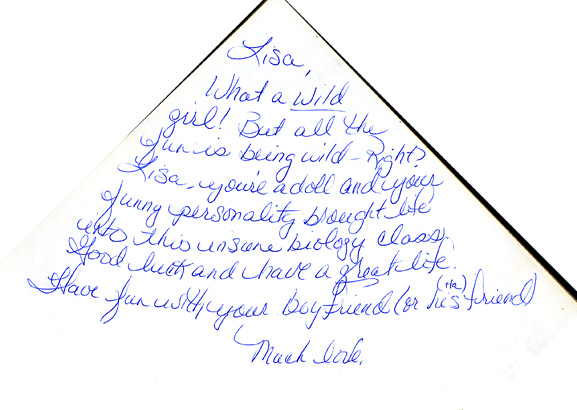 Lisa,
What a wild
girl! But all the
fun is being wild - Right?
Lisa, you're a doll and your
funny personality brought life
into this insane biology class.
Good luck and have a great life.
Have fun with your boyfriend (or his friend
(ha)
Much love,